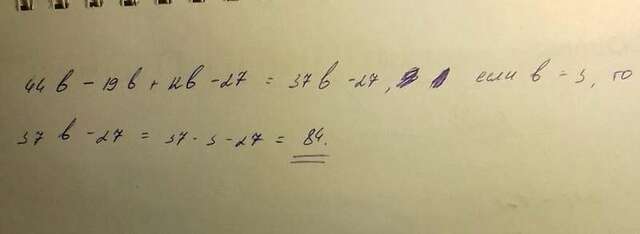 44b - 19b + 12b - 27 = 37b - 27, если b = 3, то
37b - 27 = 37 · 3 - 27 = 84.